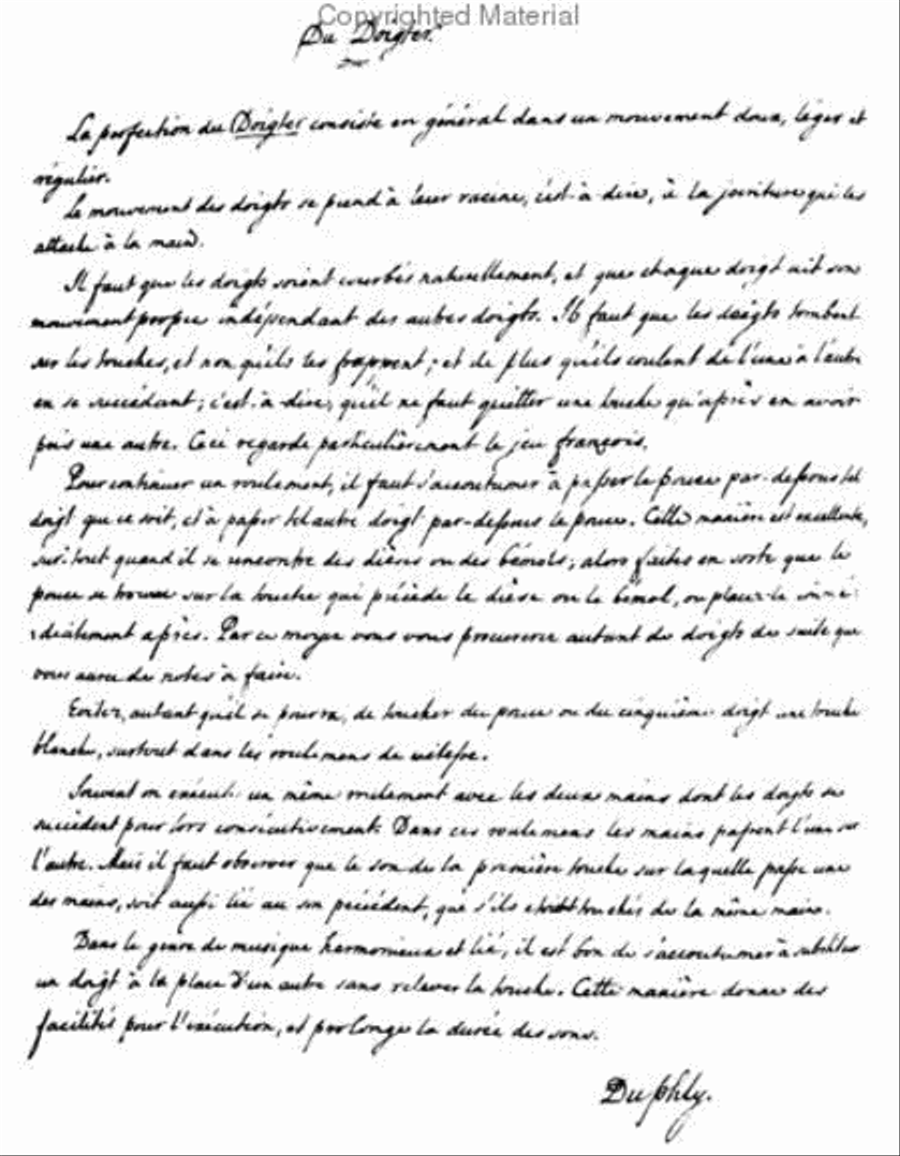 Copyrighted Material
Du Doigter.
La perfection du Doigter consiste en général dans un mouvement doux, léger et
régulier.
Le mouvement des doigts se prend à leur racine, c'est-à-dire, à la jointure qui les
attache à la main.
Il faut que les doigts soient courbés naturellement, et que chaque doigt ait son
mouvement propre indépendant des autres doigts. Il faut que les doigts tombent
sur les touches, et non qu'ils les frappent; et de plus qu'ils coulent de l'une à l'autre
en se succédant; c'est-à-dire, qu'il ne faut quitter une touche qu'après en avoir
pris une autre. Ceci regarde particulièrement le jeu françois.
Pour continuer un roulement, il faut s'accoutumer à passer le pouce par-dessous tel
doigt que ce soit, et à passer tel autre doigt par-dessus le pouce. Cette manière est excellente,
sur-tout quand il se rencontre des dièses ou des bémols; alors faites en sorte que le
pouce se trouve sur la touche qui précède le dièse ou le bémol, ou placez-le immé-
-diatement après. Par ce moyen vous vous procurerez autant de doigts de suite que
vous aurez de notes à faire.
Evitez, autant qu'il se pourra, de toucher du pouce ou du cinquième doigt une touche
blanche, surtout dans les roulemens de vitesse.
Souvent on exécute un même roulement avec les deux mains dont les doigts se
succèdent pour lors consécutivement. Dans ces roulemens les mains passent l'une sur
l'autre. Mais il faut observer que le son de la première touche sur laquelle passe une
des mains, soit aussi lié au son précédent, que s'ils étoient touchés de la même main.
Dans le genre de musique harmonieux et lié, il est bon de s'accoutumer à substituer
un doigt à la place d'un autre sans relever la touche. Cette manière donne des
facilités pour l'exécution, et prolonge la durée des sons.
Duphly.